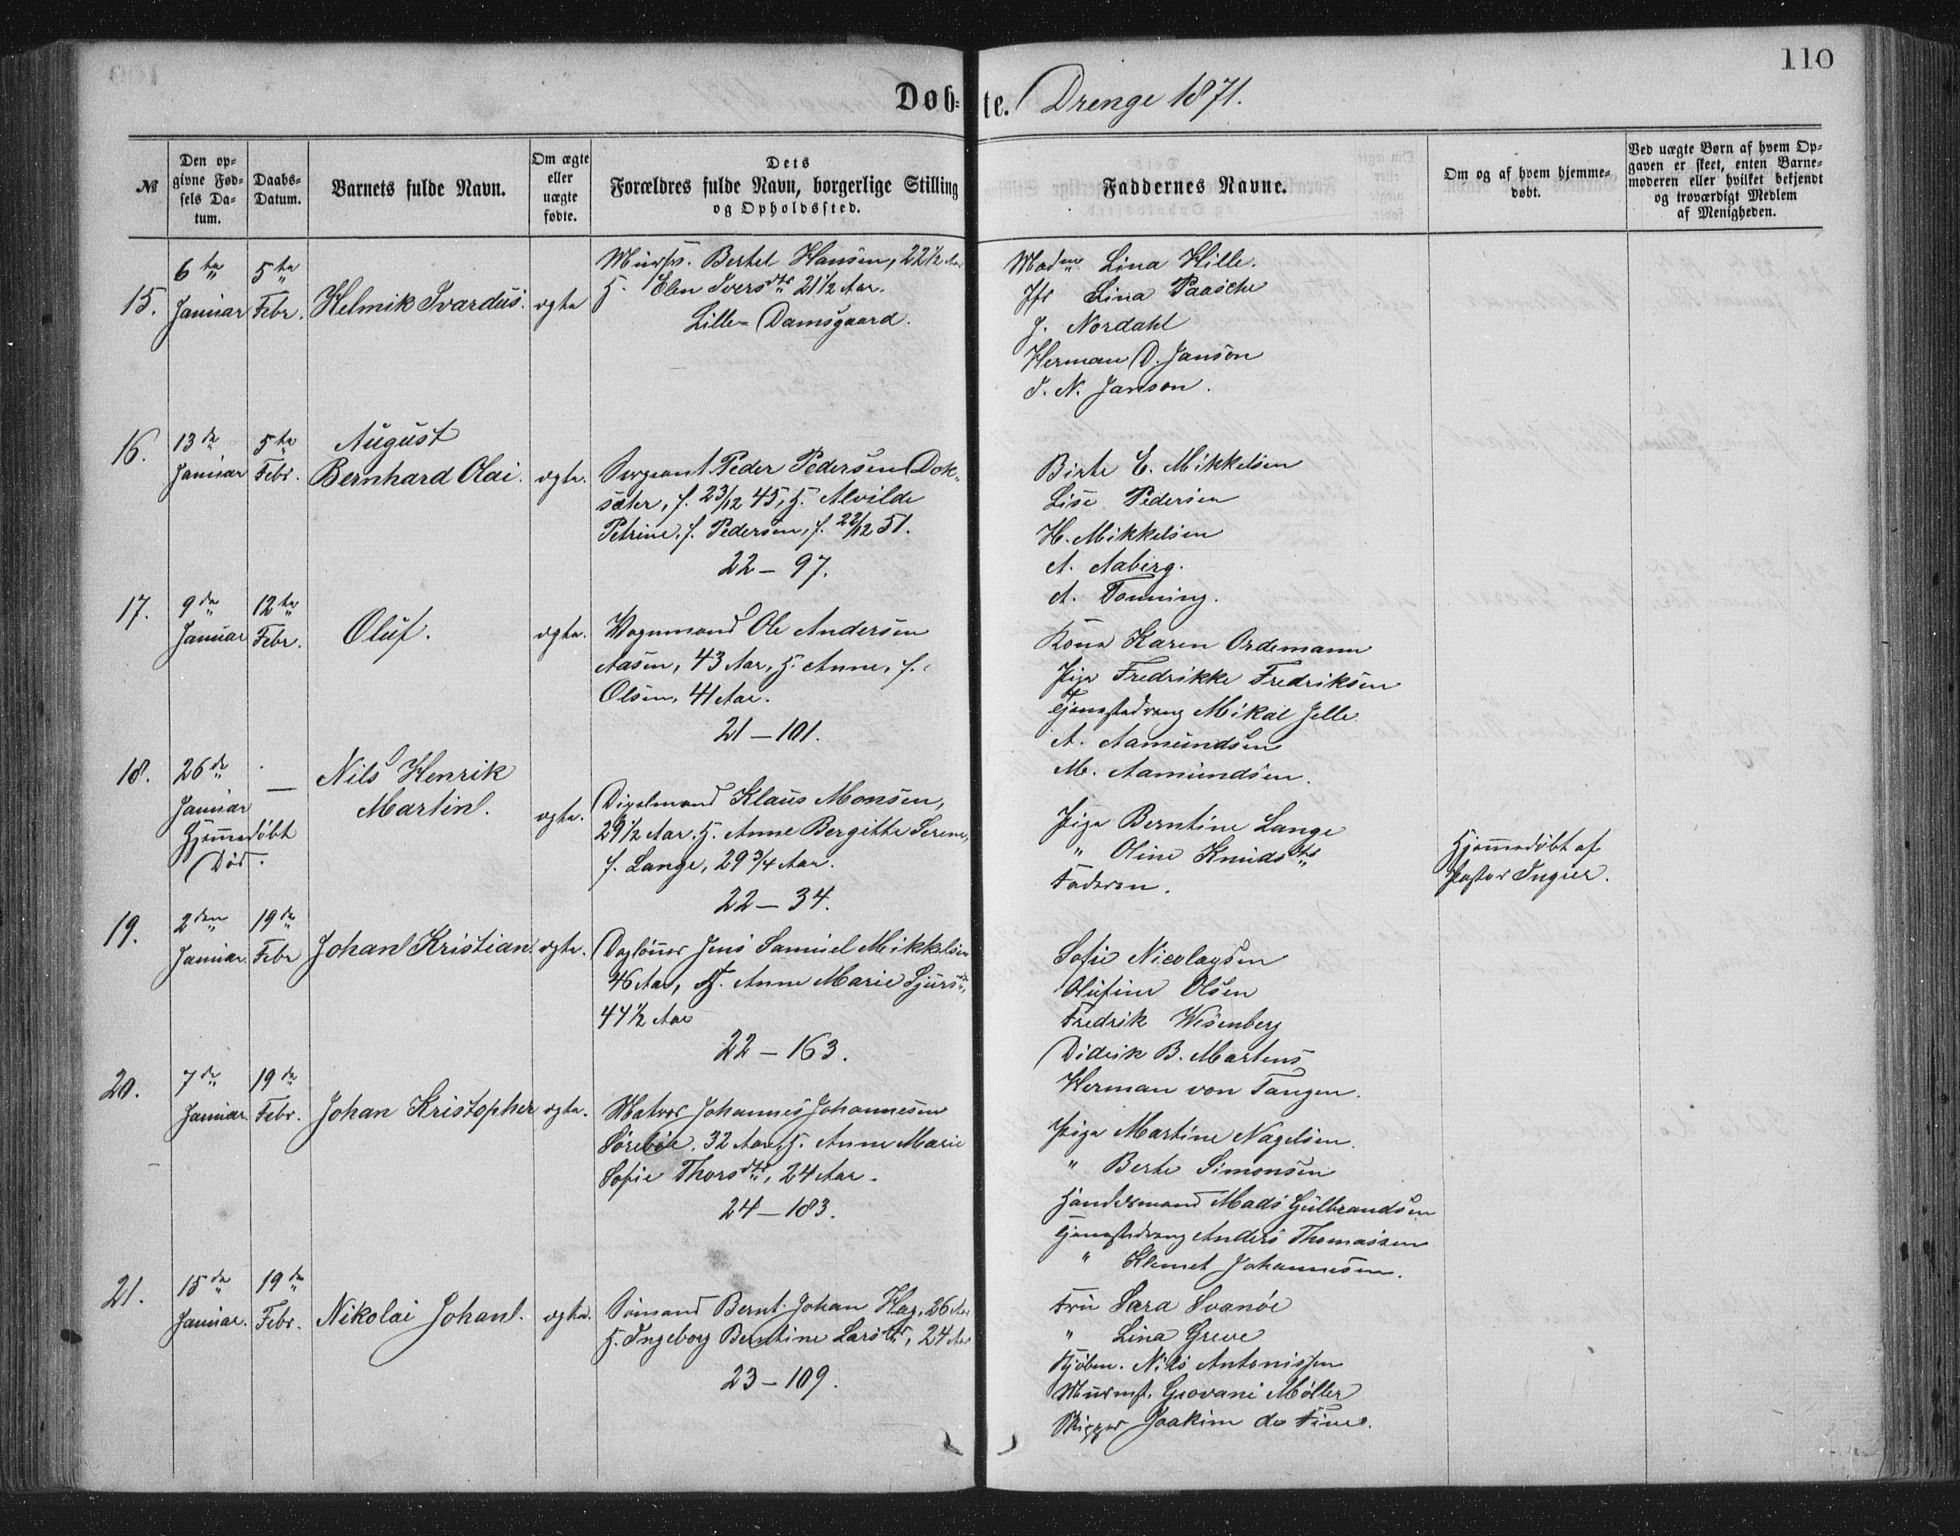 110
Døb-te. Drenge 1871.
№
Den op-
givne Fød-
sels Da-
tum.
Daabs-
Datum.
Barnets fulde Navn.
Om ægte
eller
uægte
fødte.
Dets
Forældres fulde Navn, borgerlige Stilling
og Opholdssted.
Faddernes Navne.
Om og af hvem hjemme-
døbt.
Ved uægte Børn af hvem Op-
gaven er skeet, enten Barne-
moderen eller hvilket bekjendt
og troværdigt Medlem
af Menigheden.
15.
6te
Januar
5te
Febr.
Helmik Ivardus.
ægte
Bertel Hansen, 22 1/2 Aar
H. Elen Iversdtr 21 1/2 Aar.
Lille-Damsgaard.
Madme Lina Hille.
Jfr Lina Paasche
J. Nordahl
Herman D. Janson
J. N. Janson.
16.
13de
Januar
5te
Febr.
August
Bernhard Olai.
ægte.
Sergeant Peder Pedersen Dok-
sæter, f. 23/12 45, H. Alvilde
Petrine, f. Pedersen, f. 22/12 51.
22 — 97.
Birte E. Mikkelsen
Lise Pedersen
H. Mikkelsen
A. Aaberg.
A. Tonning.
17.
9de
Januar
12te
Febr.
Oluf.
ægte.
Vognmand Ole Andersen
Aasen, 43 Aar, H. Anne, f.
Olsen, 41 Aar.
21 — 101.
Kone Karen Ordemann
Pige Fredrikke Fredriksen
Tjenestedreng Mikal Jelle
A. Aamundsen
M. Aamundsen.
18.
26de
Januar
Hjemmedøbt
Død.
—
Nils Henrik
Martin.
ægte.
Klaus Monsen,
29 1/2 Aar. H. Anne Bergitte Serene,
f. Lange, 29 3/4 Aar.
22 — 34.
Pige Berntine Lange
" Oline Knudsdtr
Faderen.
Hjemmedøbt af
Pastor Ingier.
19.
2den
Januar.
19de
Febr
Johan Kristian
ægte.
Dagløner Jens Samuel Mikkelsen
46 Aar, H. Anne Marie Sjursdr,
44 1/2 Aar
22 — 163.
Sofie Nicolaysen
Olufine Olsen
Fredrik Wesenberg
Didrik B. Martens
Herman von Tangen.
20.
7de
Januar.
19de
Febr.
Johan Kristopher
ægte.
Matros Johannes Johannesen
Sørebøe, 32 Aar, H. Anne Marie
Sofie Thorsdtr, 24 Aar.
24 — 183.
Pige Martine Nagelsen.
" Berte Simonsen
Handelsmand Mads Gulbrandsen
Tjenestedreng Anders Thomassen
" Klemet Johannesen.
21.
15de
Januar.
19de
Febr.
Nikolai Johan.
ægte.
Sømand Bernt Johan Hag, 26 Aar
H. Ingeborg Berntine Larsdtr, 24 Aar
23 — 109.
Fru Sara Svanøe
" Lina Greve
Kjøbm. Nils Antonissen
Murmst. Giovani Møller
Skipper Joakim de Fine.